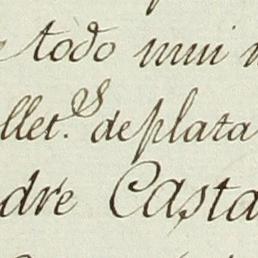 todo mui
llet.s de plata
dre Casta